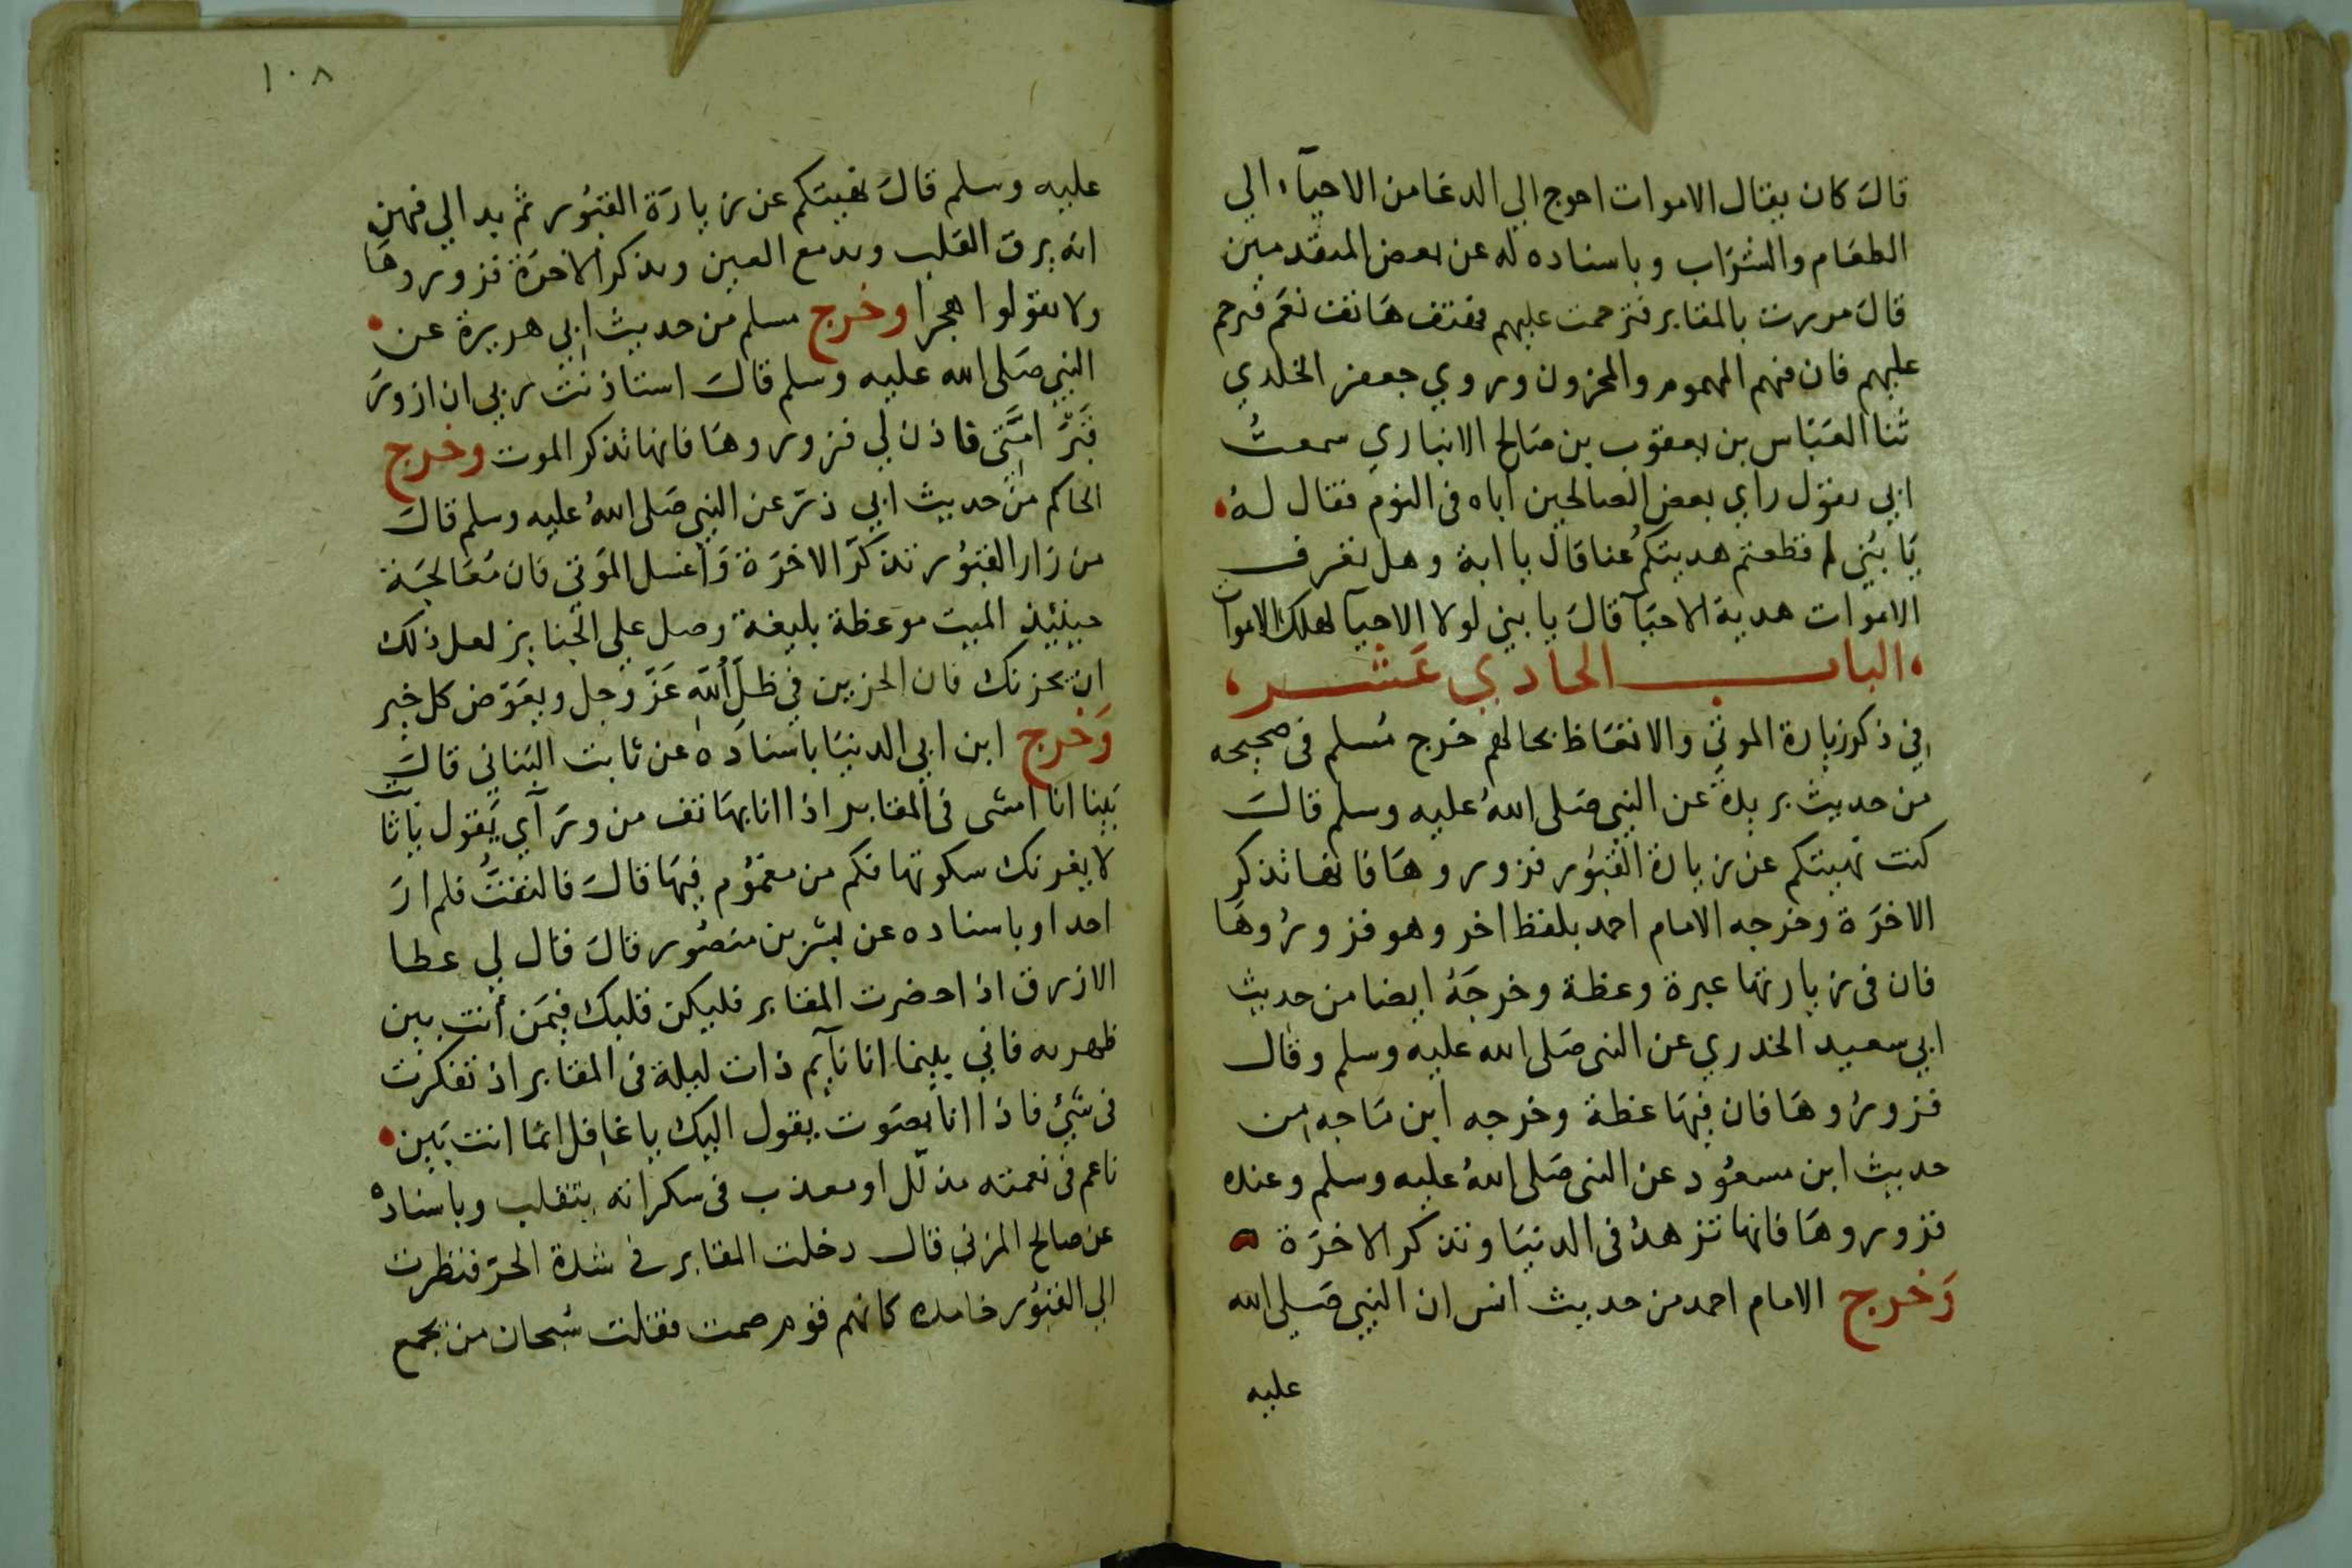 قالَ كان يقال الاموات احوج الي الدعا من الاحياء الي
الطعَام والشرَاب وباسناده له عن بعض المتقدمين
قالَ مررت بالمقابر فترحمت عليهم فهتف هَاتف نعَم فترحم
عليهم فان فيهم المهموم والمحزون وروي جعفر الخلدي
ثنا العبَاس بن يعقوب بن صَالح الانباري سمعتُ
ابي يقول راي بعض الصالحين اباه فى النوم فقال لهُ
يَا بُنَي لم قطعتم هديتكم عنا قال يا ابة وهل تعرف
الاموات هدية الاحيَآ قالَ يا بني لولا الاحيآ لهلك الاموات
الباب الحادي عَشر
في ذكر زيارة الموتى والاتعَاظ بحالهم خرج مُسلم فى صحيحه
من حديث بريدة عن النبي صَلى اللهُ عليه وسلم قالَ
كنت نهيتكم عن زيارة القبُور فزوروهَا فانها تذكر
الاخرَة وخرجه الامام احمد بلفظ اخر وهو فزورُوهَا
فان فى زيارتها عبرة وعظة وخرجَهُ ايضا من حديث
ابي سعيد الخدري عن النبى صَلى الله عليه وسلم وقال
فزورُوهَا فان فيهَا عظة وخرجه ابن مَاجه من
حديث ابن مسعُود عن النبى صَلى اللهُ عليه وسلم وعنده
فزوروهَا فانها تزهدُ فى الدنيَا وتذكر الاخرَة
وَخرج الامام احمد من حديث انس ان النبي صَلى الله
عليه
١٠٨
عليه وسلم قالَ نهيتكم عن زيارَة القبُور ثم بدا لي فيهن
انه يرق القلب وتدمع العين وتذكر الاخرَة فزوروهَا
ولا تقولوا هجرا وخرج مسلم من حديث ابي هريرة عن
النبي صَلى الله عليه وسلم قالَ استاذنت ربي ان ازورَ
قبرَ امّي فاذن لي فزوروهَا فانها تذكر الموت وخرج
الحاكم من حديث ابي ذر عن النبي صَلى اللهُ عليه وسلم قالَ
من زار القبُور تذكرَ الاخرَة وَاغسل المَوتى فان مُعَالجَة
حينئيذ الميت موعظة بليغة وصل علي الجنايز لعل ذلك
ان يحزنك فان الحزين في ظل اللهِ عَزّ وَجل ويعَوّض كل خير
وَخرج ابن ابي الدنيَا باسنادَه عن ثابت البُناني قالَ
بَينا انا امشى فى المقابر اذا انا بهَاتف من ورَآي يَقول يا ثابت
لا يغرنك سكوتها فكم من مغمُوم فيهَا قالَ فالتفتُّ فلم ارَ
احدا وباسناده عن بشر بن منصُور قالَ قال لي عطا
الازرق اذا حضرت المقابر فليكن قلبك فيمَن أنت بين
ظهريه فاني بينما انا نآيم ذات ليلة فى المقابر اذ تفكرت
فى شيئ فاذا انا بصَوت يقول اليك يا غافِل انمَا انت بَين
ناعم فى نعمته مذلّل او معذب فى سكراته يتقلب وباسناده
عن صالح المزني قال دخلت المقابر في شدة الحرّ فنظرت
الي القبُور خامده كانهم قوم صمت فقلت سُبحان من يجمع